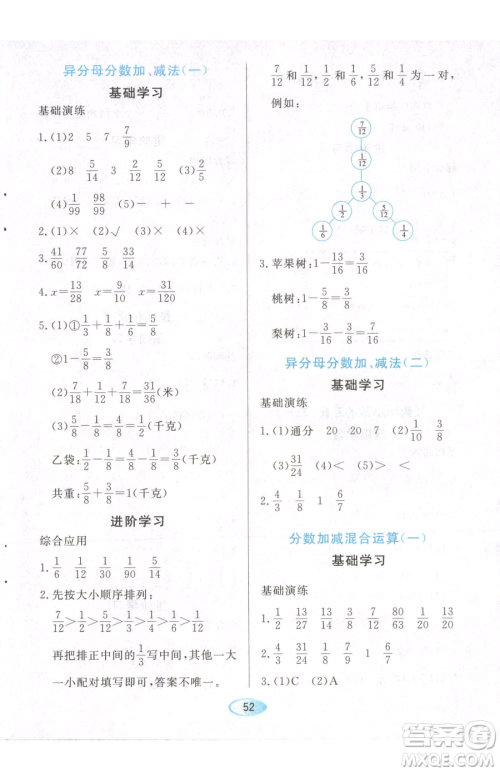 异分母分数加、减法(一)
基础学习
基础演练
1.(1)2 5 7 7/9
(2)8 5/14 3 (3)2/5
(4)1/99 98/99 ...
2.(1)× (2)√ (3)×
3. 41/60 77/72 5/8 33/56
4. x=13/28 x=9/10 x=31/120
5.(1)①1/3+1/8=
(2)1-5/8=3/8
(2)7/18+1/12+5/4=31/18(米)
(3)5/8-1/2=1/8(千克)
乙袋:1/2-1/8=3/8(千克)
共重:5/8+3/8=1(千克)
进阶学习
综合应用
1. 1/6 1/12 1/20 1/30
2.先按大小顺序排列:
7/12>1/2>5/12>1/3>1/4>1/6>1/12
再把排正中间的1/3写中间,其他一大
一小配对填写即可,答案不唯一。
7/12和1/12,1/2和1/6,5/12和1/4为一对,
例如:
7/12
1/12
1/3
1/2 5/12
1/6 1/4
3.苹果树:1-13/16=3/16
桃树:1-5/8=3/8
梨树:1-3/16-3/8=7/16
异分母分数加、减法(二)
基础学习
基础演练
1.(1)通分 20 20 7 (2)1/10 3/8
(3)31/24 (4)> <
2. 4/9 5/8 1 6/7
分数加减混合运算(一)
基础学习
基础演练
1. 1/2 13/12 3/8 7/12 80/63 1/20 13/20
2. 31/24 1/4 6/7
3.(1)C (2)A
52
答案圈